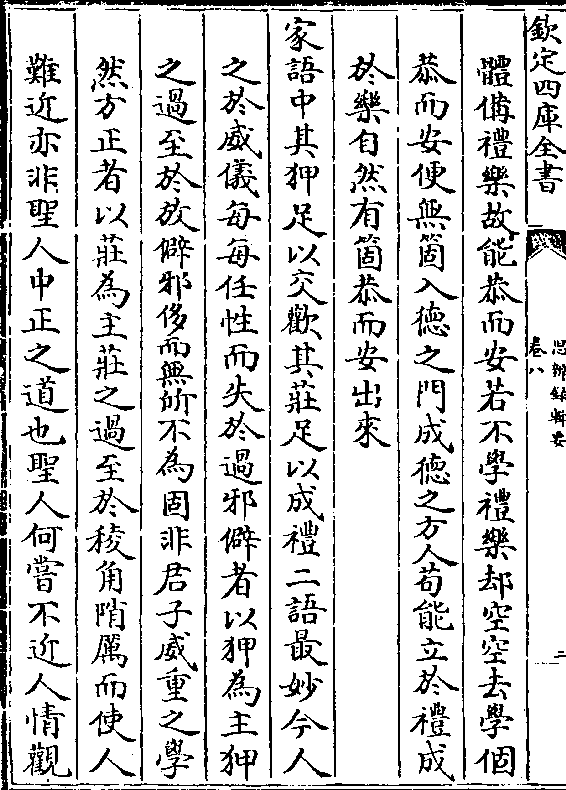 欽定四庫全書
思辨録輯要
卷八
二
體備禮樂故能恭而安若不學禮樂却空空去學個
恭而安便無箇入德之門成德之方人苟能立於禮成
於樂自然有箇恭而安出來
家語中其狎足以交歡其莊足以成禮二語最妙今人
之於威儀每每任性而失於過邪僻者以狎為主狎
之過至於放僻邪侈而無所不為固非君子威重之學
然方正者以莊為主莊之過至於稜角陗厲而使人
難近亦非聖人中正之道也聖人何嘗不近人情觀